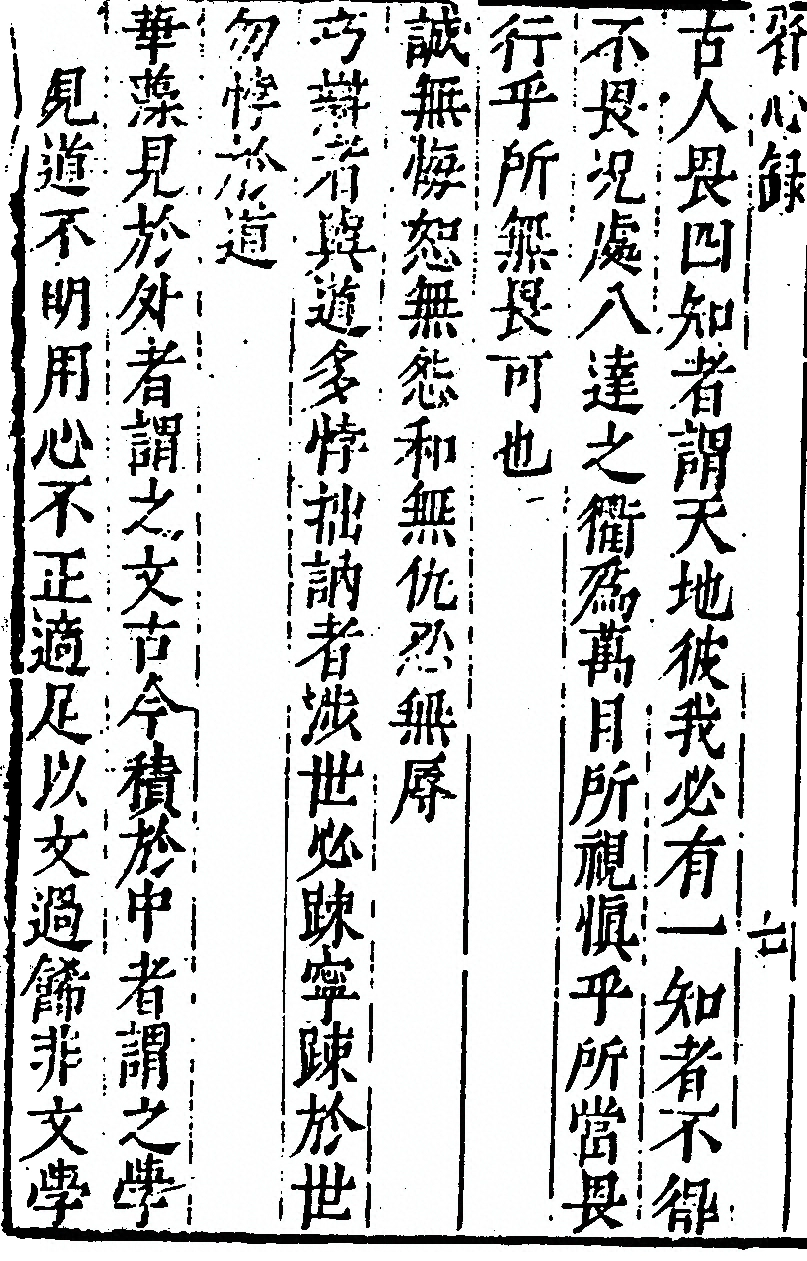 省心録
古人畏四知者謂天地彼我必有一知者不得
不畏况處八達之衢爲萬目所視慎乎所當畏
行乎所無畏可也
誠無悔恕無怨和無仇忍無辱
巧辯者與道多悖拙訥者涉世必踈寧踈於世
勿悖於道
華藻見於外者謂之文古今積於中者謂之學
見道不明用心不正適足以文過餙非文學